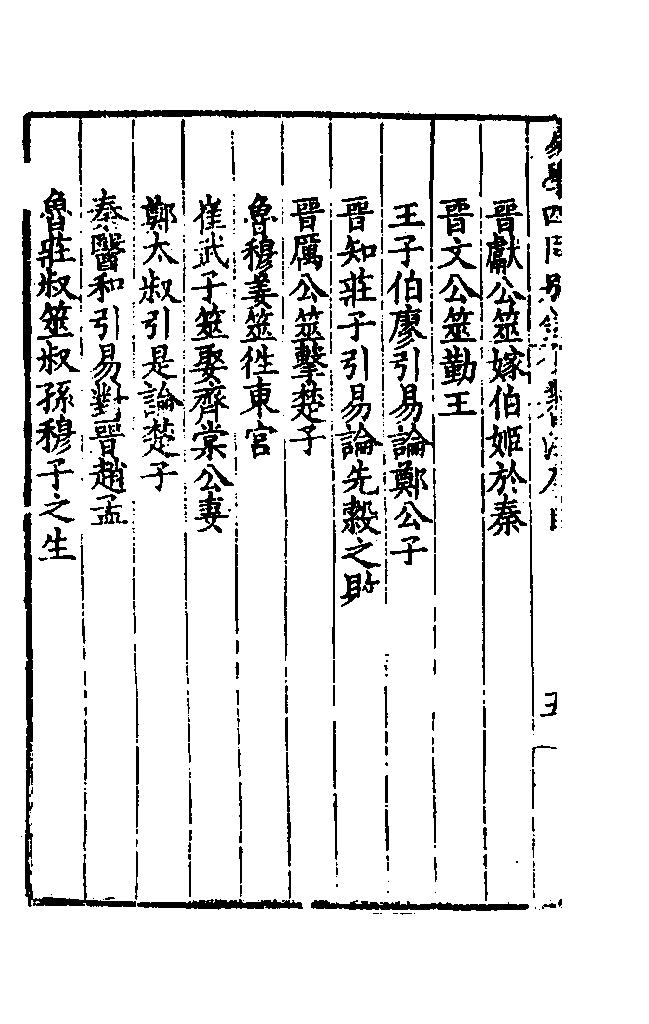 晉獻公筮嫁伯姬於秦
晉文公筮勤王
王子伯廖引易論鄭公子
晉知莊子引易論先縠之敗
晉厲公筮擊楚子
魯穆姜筮徃東宮
崔武子筮娶齊棠公妻
鄭太叔引是論楚子
秦醫和引易對晉趙孟
魯莊叔筮叔孫穆子之生